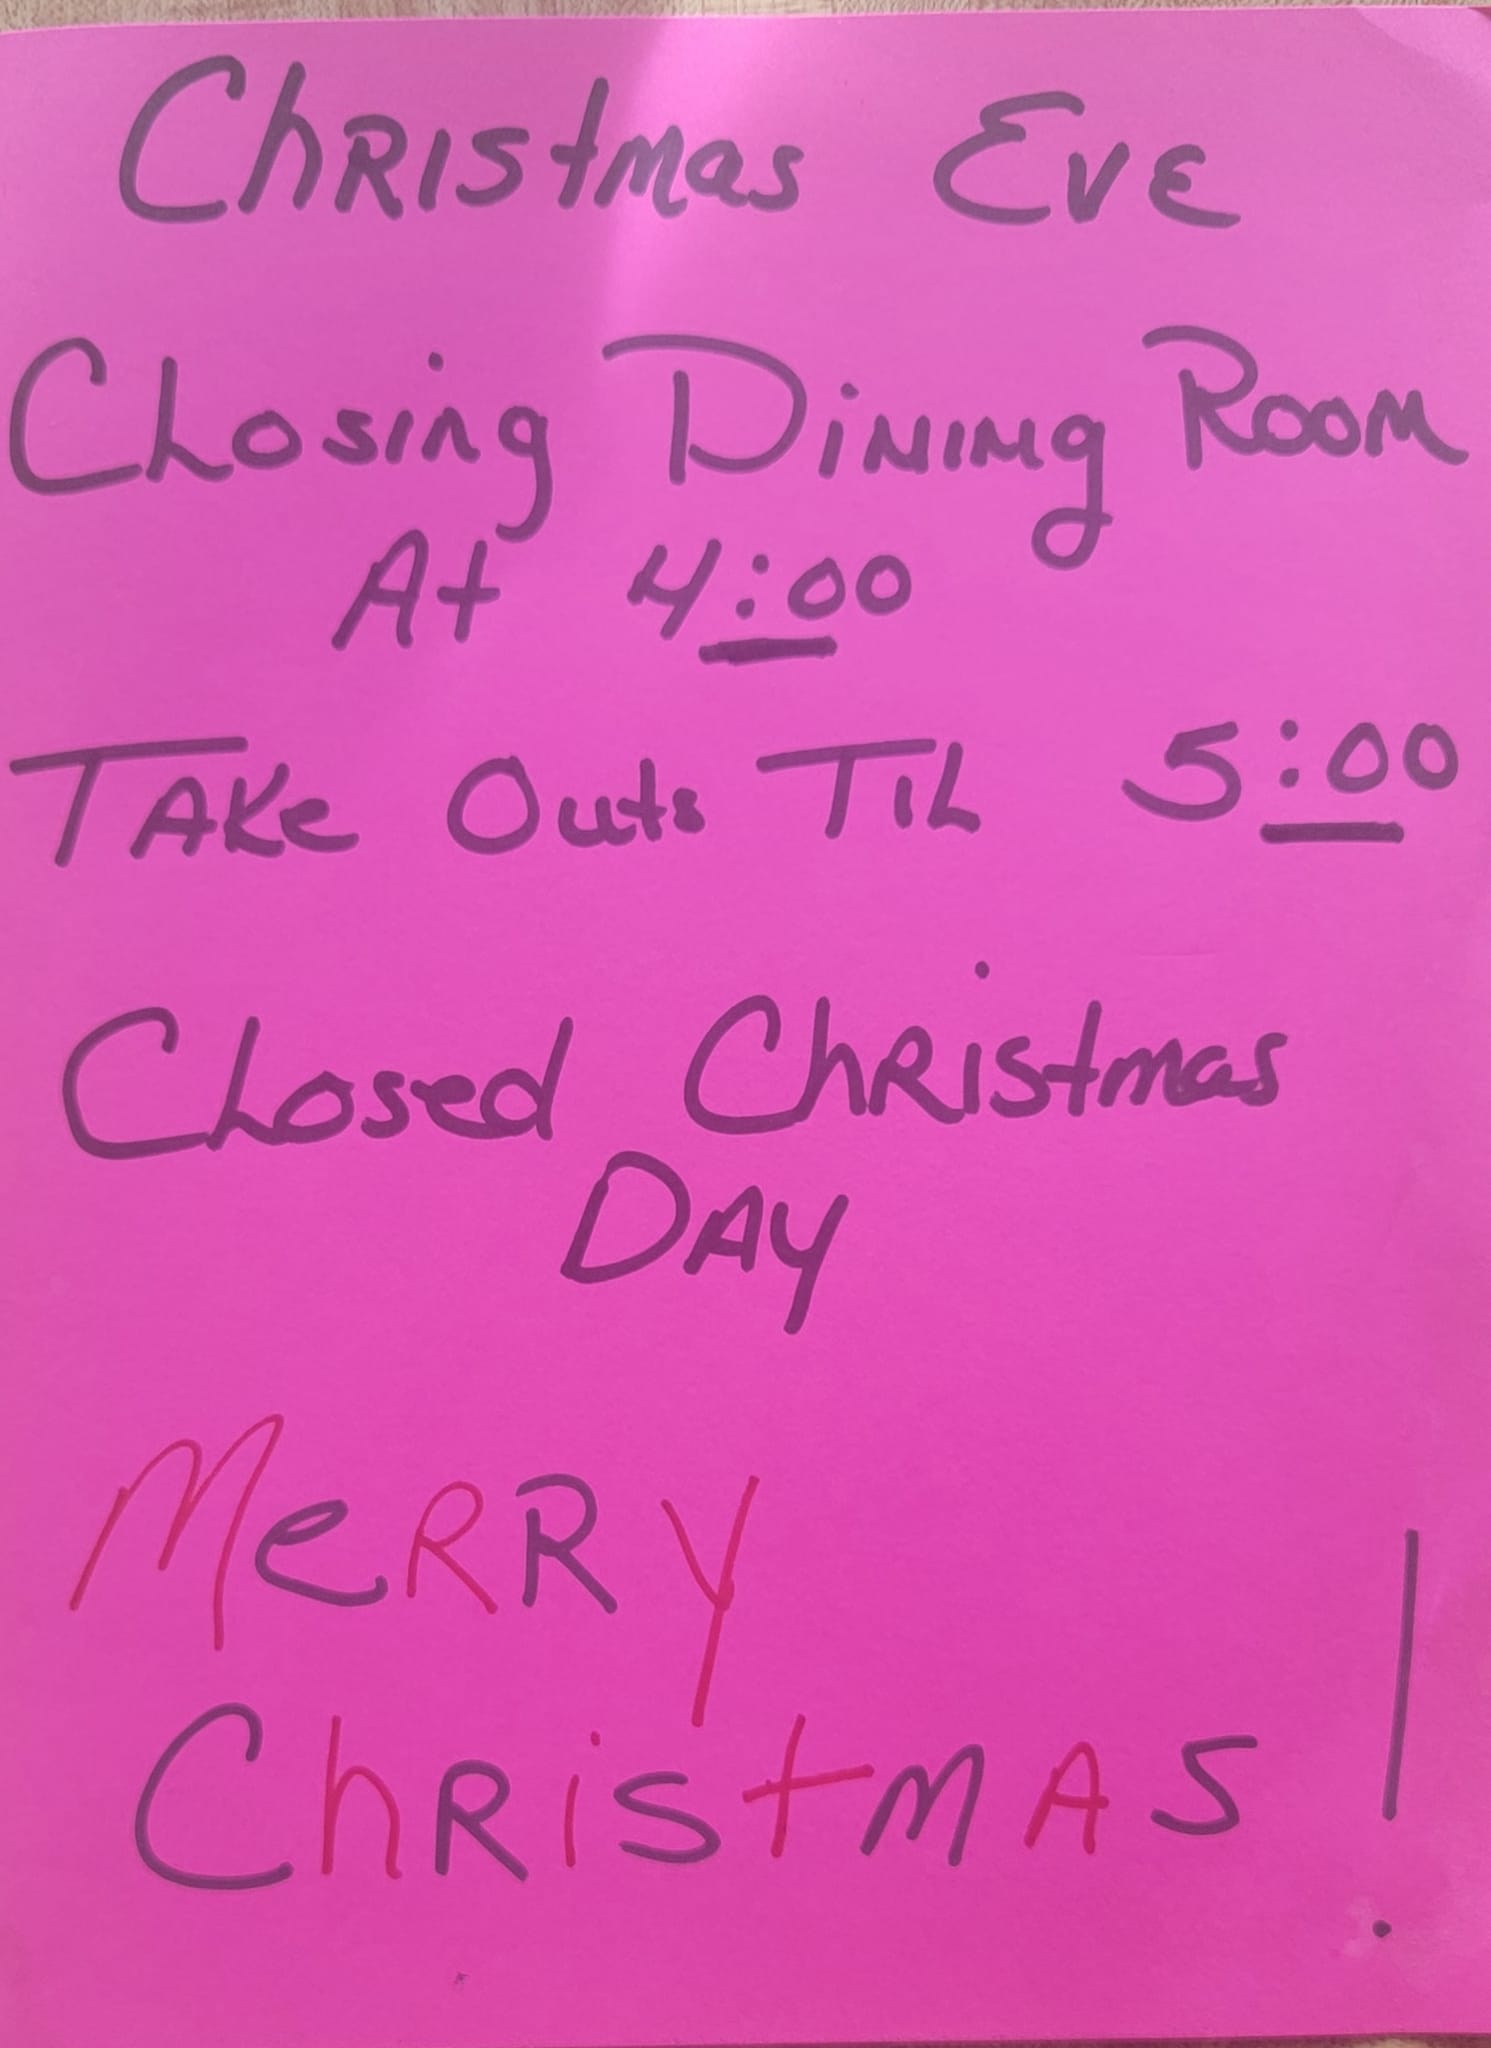 Christmas Eve
Closing Dining Room
At 4:00
Take Outs Til 5:00
Closed Christmas
Day
Merry
Christmas!